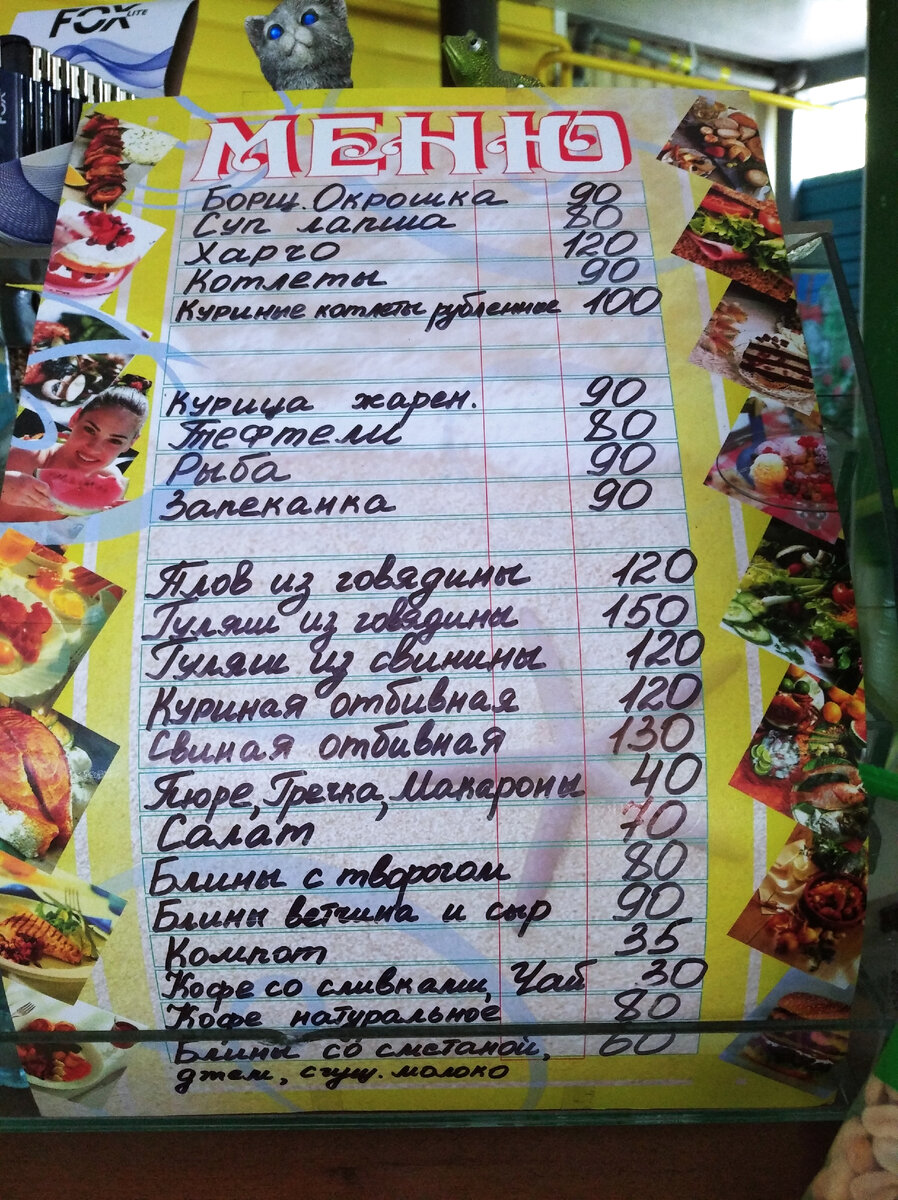 FOX LITE
FOX
МЕНЮ
Борщ. Окрошка 90
Суп лапша 80
Харчо 120
Котлеты 90
Куриные котлеты рубленные 100
Курица жарен. 90
Тефтели 80
Рыба 90
Запеканка 90
Плов из говядины 120
Гуляш из говядины 150
Гуляш из свинины 120
Куриная отбивная 120
Свиная отбивная 130
Пюре, Гречка, Макароны 40
Салат 70
Блины с творогом 80
Блины ветчина и сыр 90
Компот 35
Кофе со сливками, Чай 30
Кофе натуральное 80
Блины со сметаной, 60
джем, сгущ. молоко